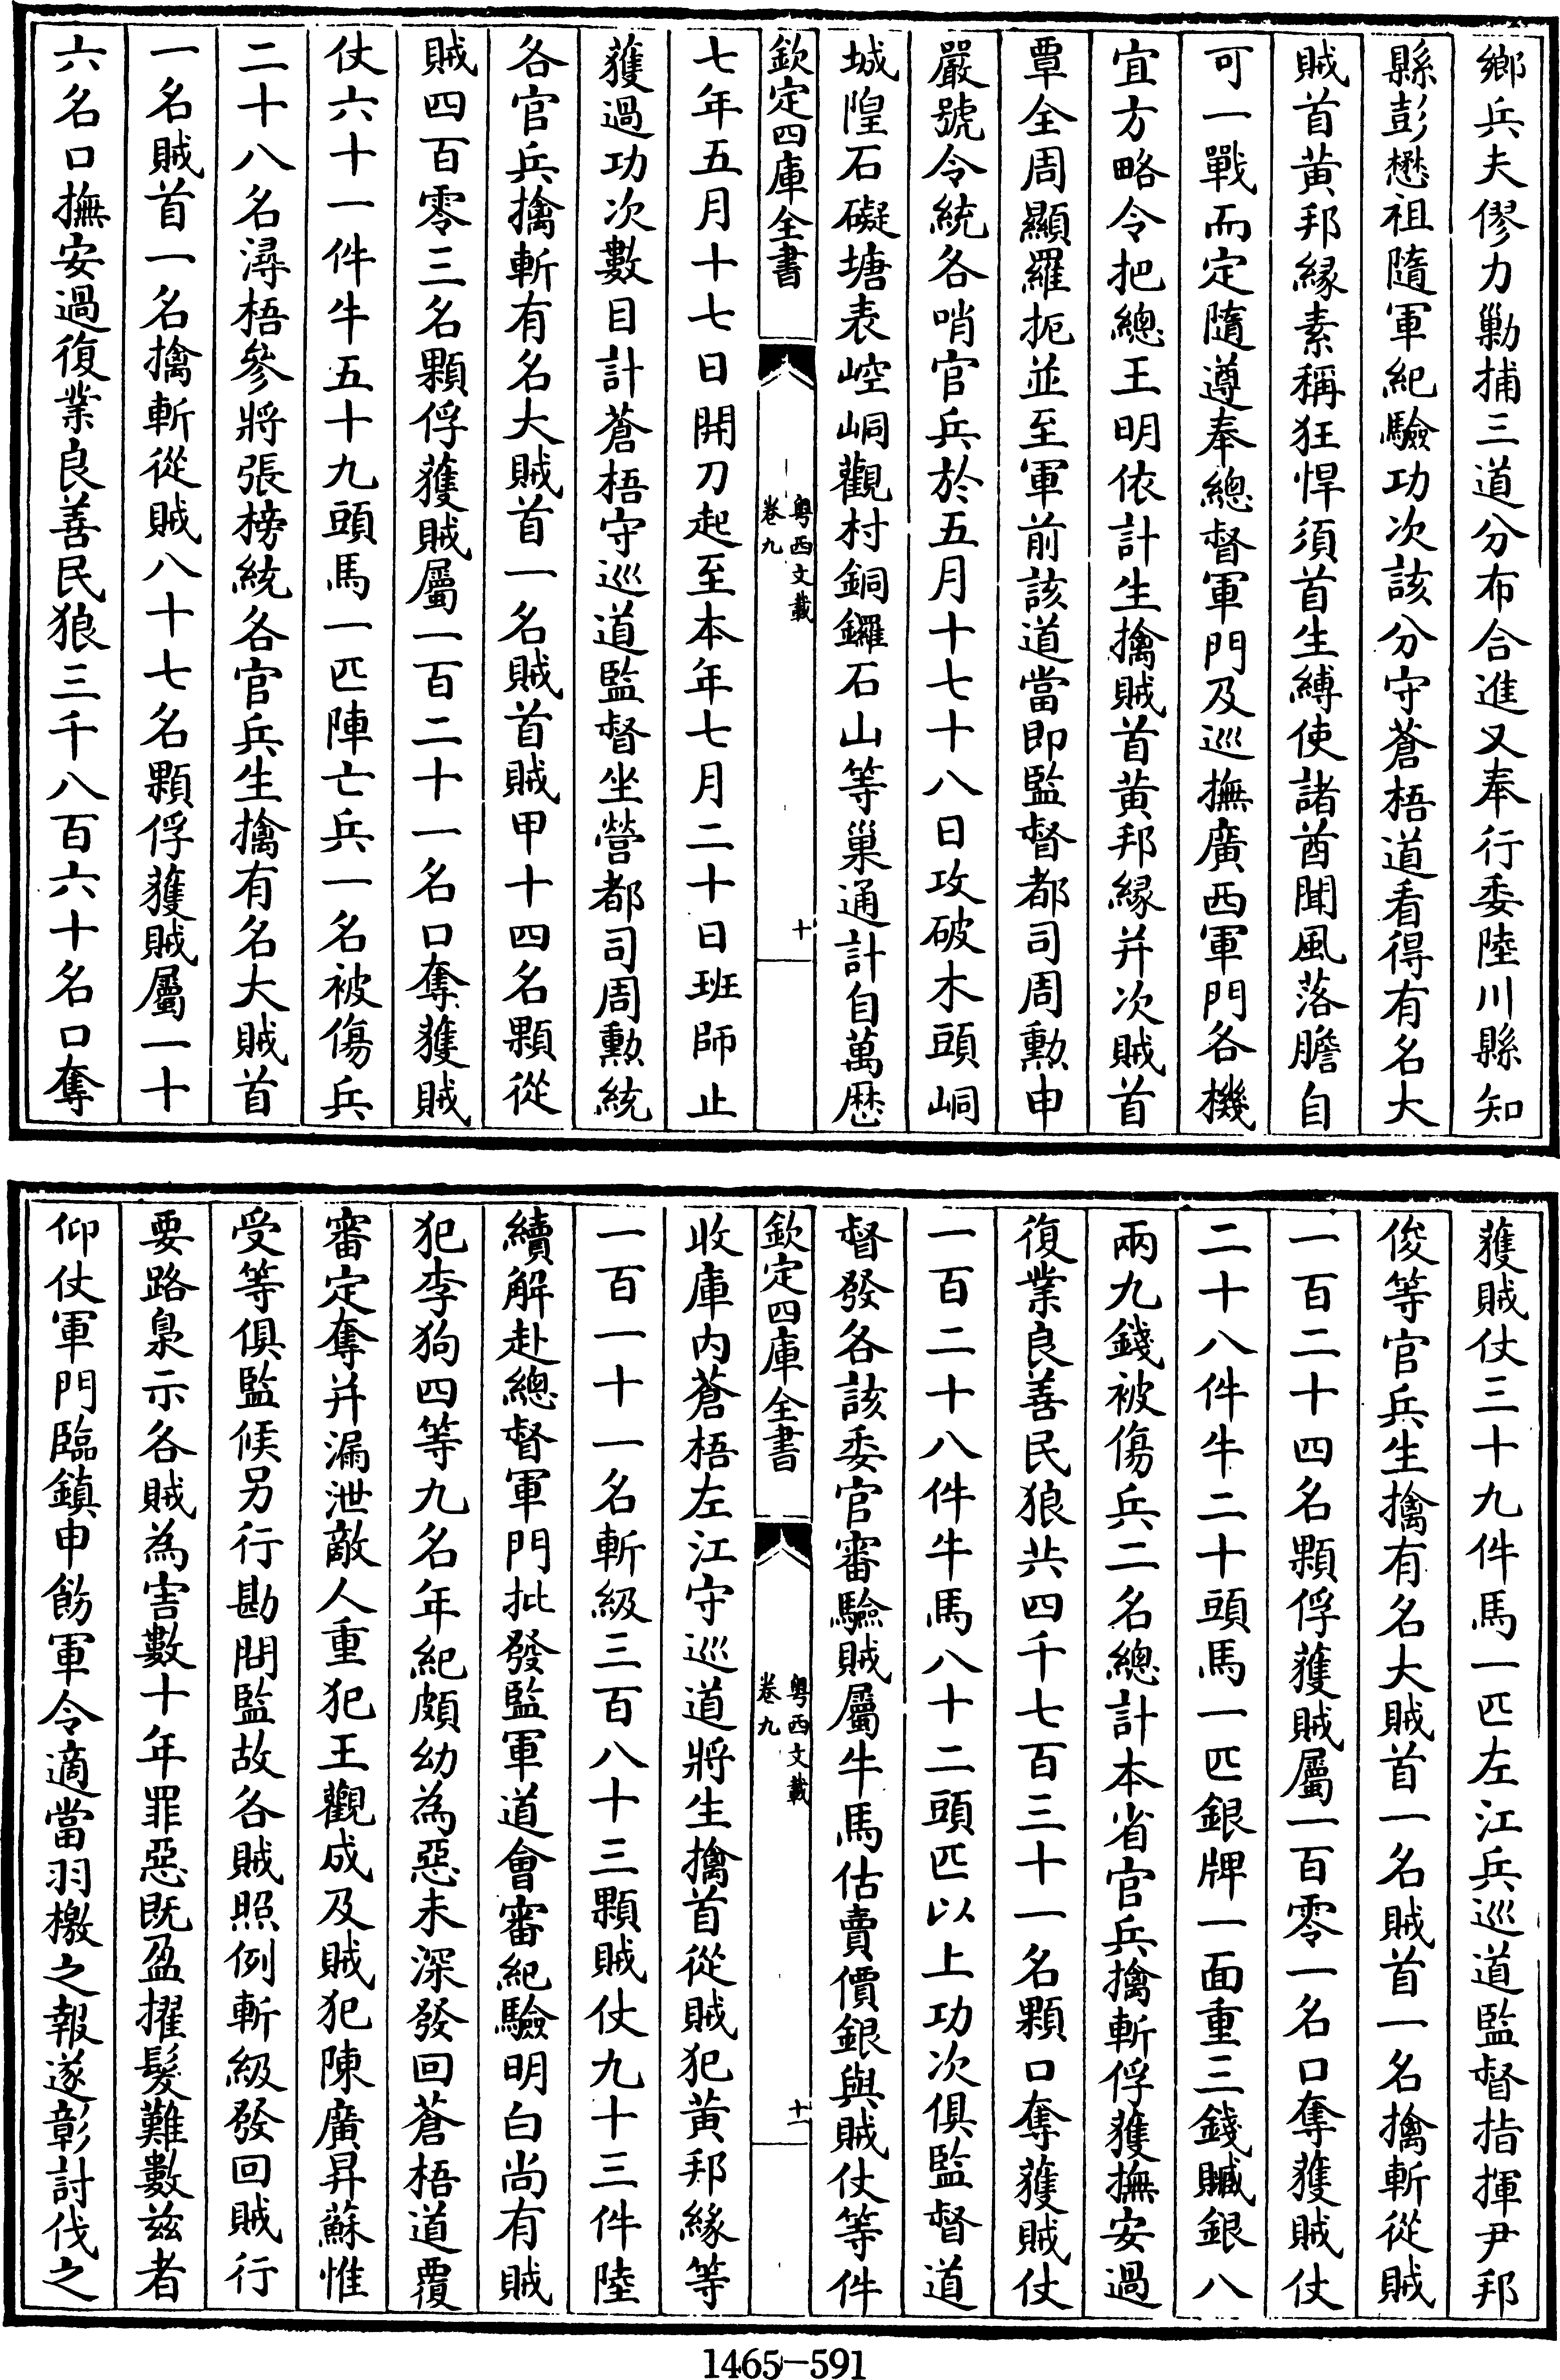 鄉兵夫僇力勦捕三道分布合進又奉行委陸川縣知
縣彭懋祖隨軍紀驗功次該分守蒼梧道看得有名大
賊首黃邦緣素稱狂悍須首生縛使諸酋聞風落膽自
可一戰而定隨遵奉總督軍門及巡撫廣西軍門各機
宜方略令把總王明依計生擒賊首黃邦緣并次賊首
覃全周顯羅扼並至軍前該道當即監督都司周勲申
嚴號令統各哨官兵於五月十七十八日攻破木頭峒
城隍石礙塘表崆峒觀村銅鑼石山等巢通計自萬厯
欽定四庫全書
粵西文載
卷九
十
七年五月十七日開刀起至本年七月二十日班師止
獲過功次數目計蒼梧守巡道監督坐營都司周勲統
各官兵擒斬有名大賊首一名賊首賊甲十四名顆從
賊四百零三名顆俘獲賊屬一百二十一名口奪獲賊
仗六十一件牛五十九頭馬一匹陣亡兵一名被傷兵
二十八名潯梧參將張榜統各官兵生擒有名大賊首
一名賊首一名擒斬從賊八十七名顆俘獲賊屬一十
六名口撫安過復業良善民狼三千八百六十名口奪
獲賊仗三十九件馬一匹左江兵巡道監督指揮尹邦
俊等官兵生擒有名大賊首一名賊首一名擒斬從賊
一百二十四名顆俘獲賊屬一百零一名口奪獲賊仗
二十八件牛二十頭馬一匹銀牌一面重三錢贓銀八
兩九錢被傷兵二名總計本省官兵擒斬俘獲撫安過
復業良善民狼共四千七百三十一名顆口奪獲賊仗
一百二十八件牛馬八十二頭匹以上功次俱監督道
督發各該委官審驗賊屬牛馬估賣價銀與賊仗等件
欽定四庫全書
粵西文載
卷九
十一
收庫內蒼梧左江守巡道將生擒首從賊犯黃邦緣等
一百一十一名斬級三百八十三顆賊仗九十三件陸
續解赴總督軍門批發監軍道會審紀驗明白尚有賊
犯李狗四等九名年紀頗幼為惡未深發回蒼梧道覆
審定奪并漏泄敵人重犯王觀成及賊犯陳廣昇蘇惟
受等俱監候另行勘問監故各賊照例斬級發回賊行
要路梟示各賊為害數十年罪惡既盈擢髮難數茲者
仰仗軍門臨鎮申飭軍令適當羽檄之報遂彰討伐之
1465-591